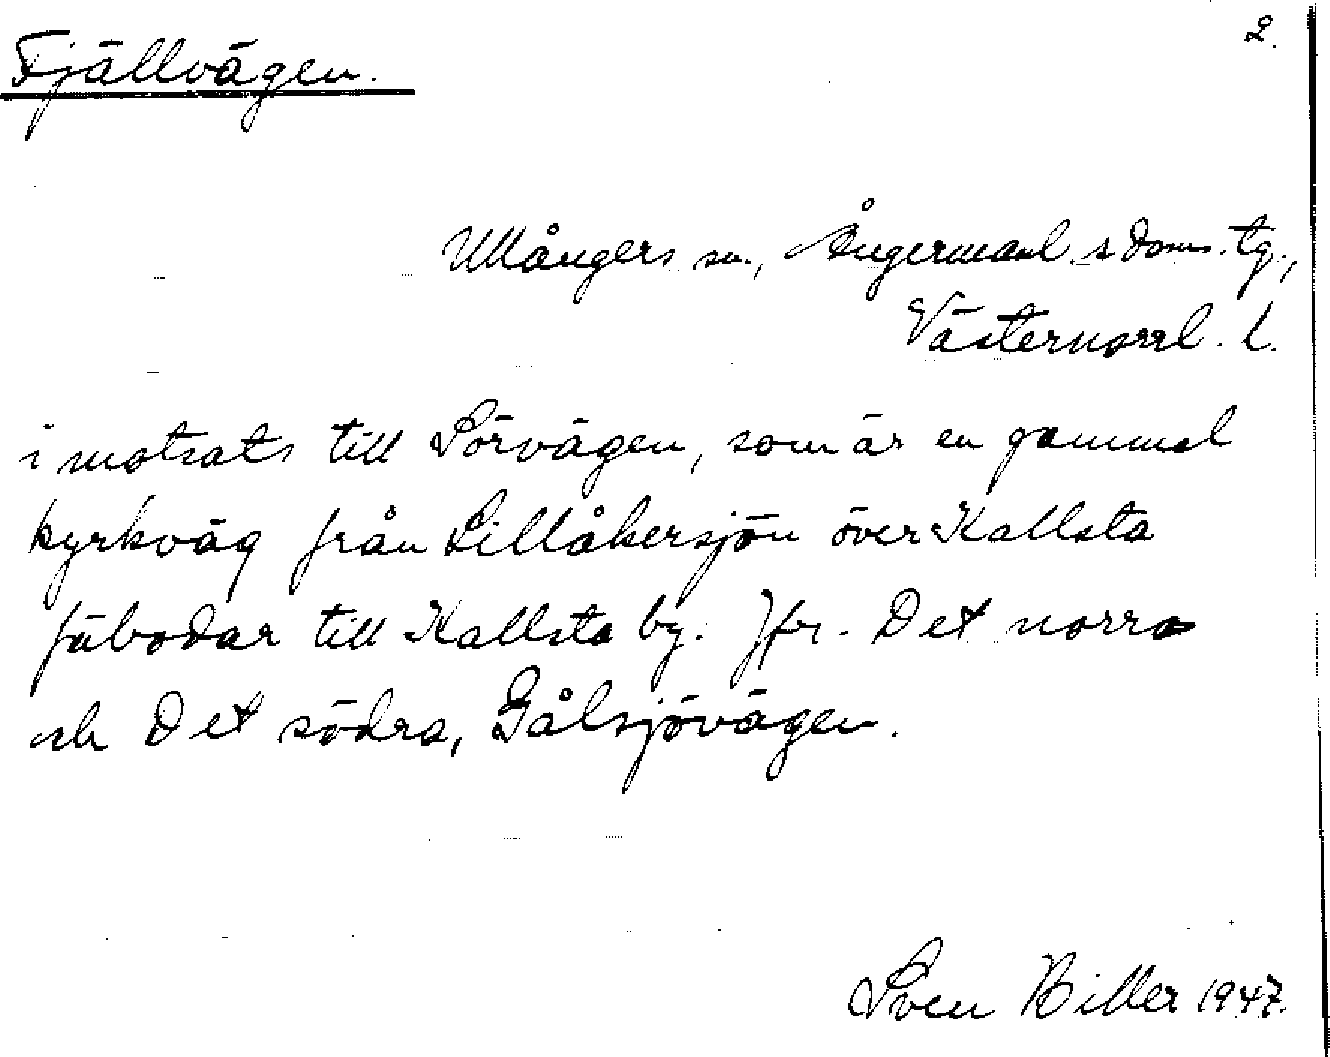 2.
Fjällvägen.
Ullångers sn., Ångermanl. s doms. tg.,
Västernorrl. l.
i motsats till Sörvägen, som är en gammal
kyrkväg från Lillåkersjön över Kallsta
fäbodar till Kallsta by. Jfr. Det norra
och Det södra, Gålsjövägen.
Sven Biller 1947.